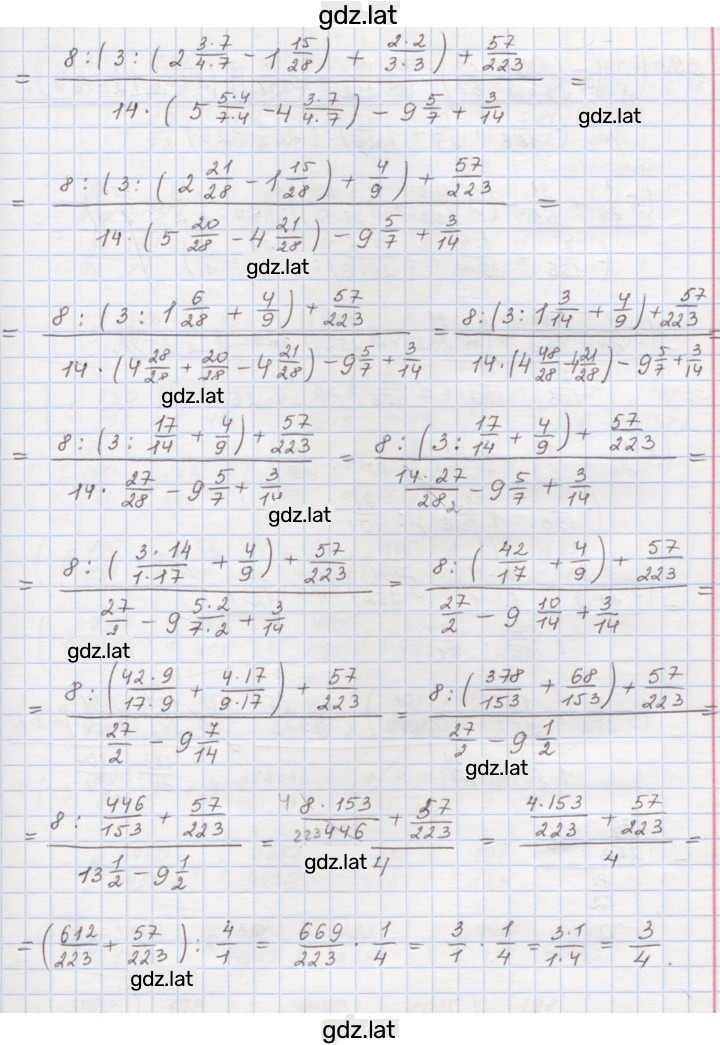 gdz.lat
= (8 : (3 : (2 3·7/4·7 - 1 15/28) + 2·2/3·3) + 57/223) / (14 · (5 5·4/7·4 - 4 3·7/4·7) - 9 5/7 + 3/14) =
gdz.lat
= (8 : (3 : (2 21/28 - 1 15/28) + 4/9) + 57/223) / (14 · (5 20/28 - 4 21/28) - 9 5/7 + 3/14) =
gdz.lat
= (8 : (3 : 1 6/28 + 4/9) + 57/223) / (14 · (4 28/28 + 20/28 - 4 21/28) - 9 5/7 + 3/14) = (8 : (3 : 1 3/14 + 4/9) + 57/223) / (14 · (4 48/28 - 4 21/28) - 9 5/7 + 3/14) =
gdz.lat
= (8 : (3 : 17/14 + 4/9) + 57/223) / (14 · 27/28 - 9 5/7 + 3/14) = (8 : (3 : 17/14 + 4/9) + 57/223) / (14·27/28 2 - 9 5/7 + 3/14) =
gdz.lat
= (8 : (3·14/1·17 + 4/9) + 57/223) / (27/2 - 9 5·2/7·2 + 3/14) = (8 : (42/17 + 4/9) + 57/223) / (27/2 - 9 10/14 + 3/14) =
gdz.lat
= (8 : (42·9/17·9 + 4·17/9·17) + 57/223) / (27/2 - 9 7/14) = (8 : (378/153 + 68/153) + 57/223) / (27/2 - 9 1/2) =
gdz.lat
= (8 : 446/153 + 57/223) / (13 1/2 - 9 1/2) = (4 8·153/223 446 + 57/223) / 4 = (4·153/223 + 57/223) / 4 =
gdz.lat
= (612/223 + 57/223) : 4/1 = 669/223 · 1/4 = 3/1 · 1/4 = 3·1/1·4 = 3/4 .
gdz.lat
gdz.lat